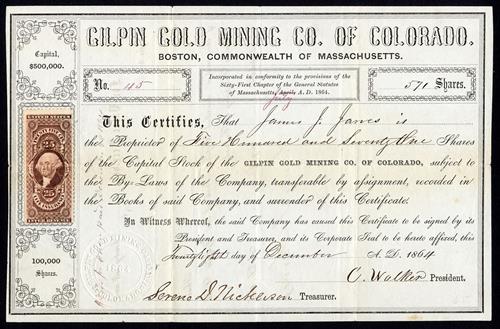 GILPIN GOLD MINING CO. OF COLORADO.
BOSTON, COMMONWEALTH OF MASSACHUSETTS.
Capital,
$500,000.
No. 45
Incorporated in conformity to the provisions of the
Sixty-First Chapter of the General Statutes
of Massachusetts, July A. D. 1864.
571 Shares.
This Certifies, That James J. Jarves is
the Proprietor of Five Hundred and Seventy One Shares
of the Capital Stock of the GILPIN GOLD MINING CO. OF COLORADO, subject to
the By-Laws of the Company, transferable by assignment, recorded in
the Books of said Company, and surrender of this Certificate.
In Witness Whereof, the said Company has caused this Certificate to be signed by its
President and Treasurer, and its Corporate Seal to be hereto affixed, this
Twenty eighth day of December A. D. 1864
C. Walker President.
Sereno D. Nickerson Treasurer.
25
25
100,000
Shares.